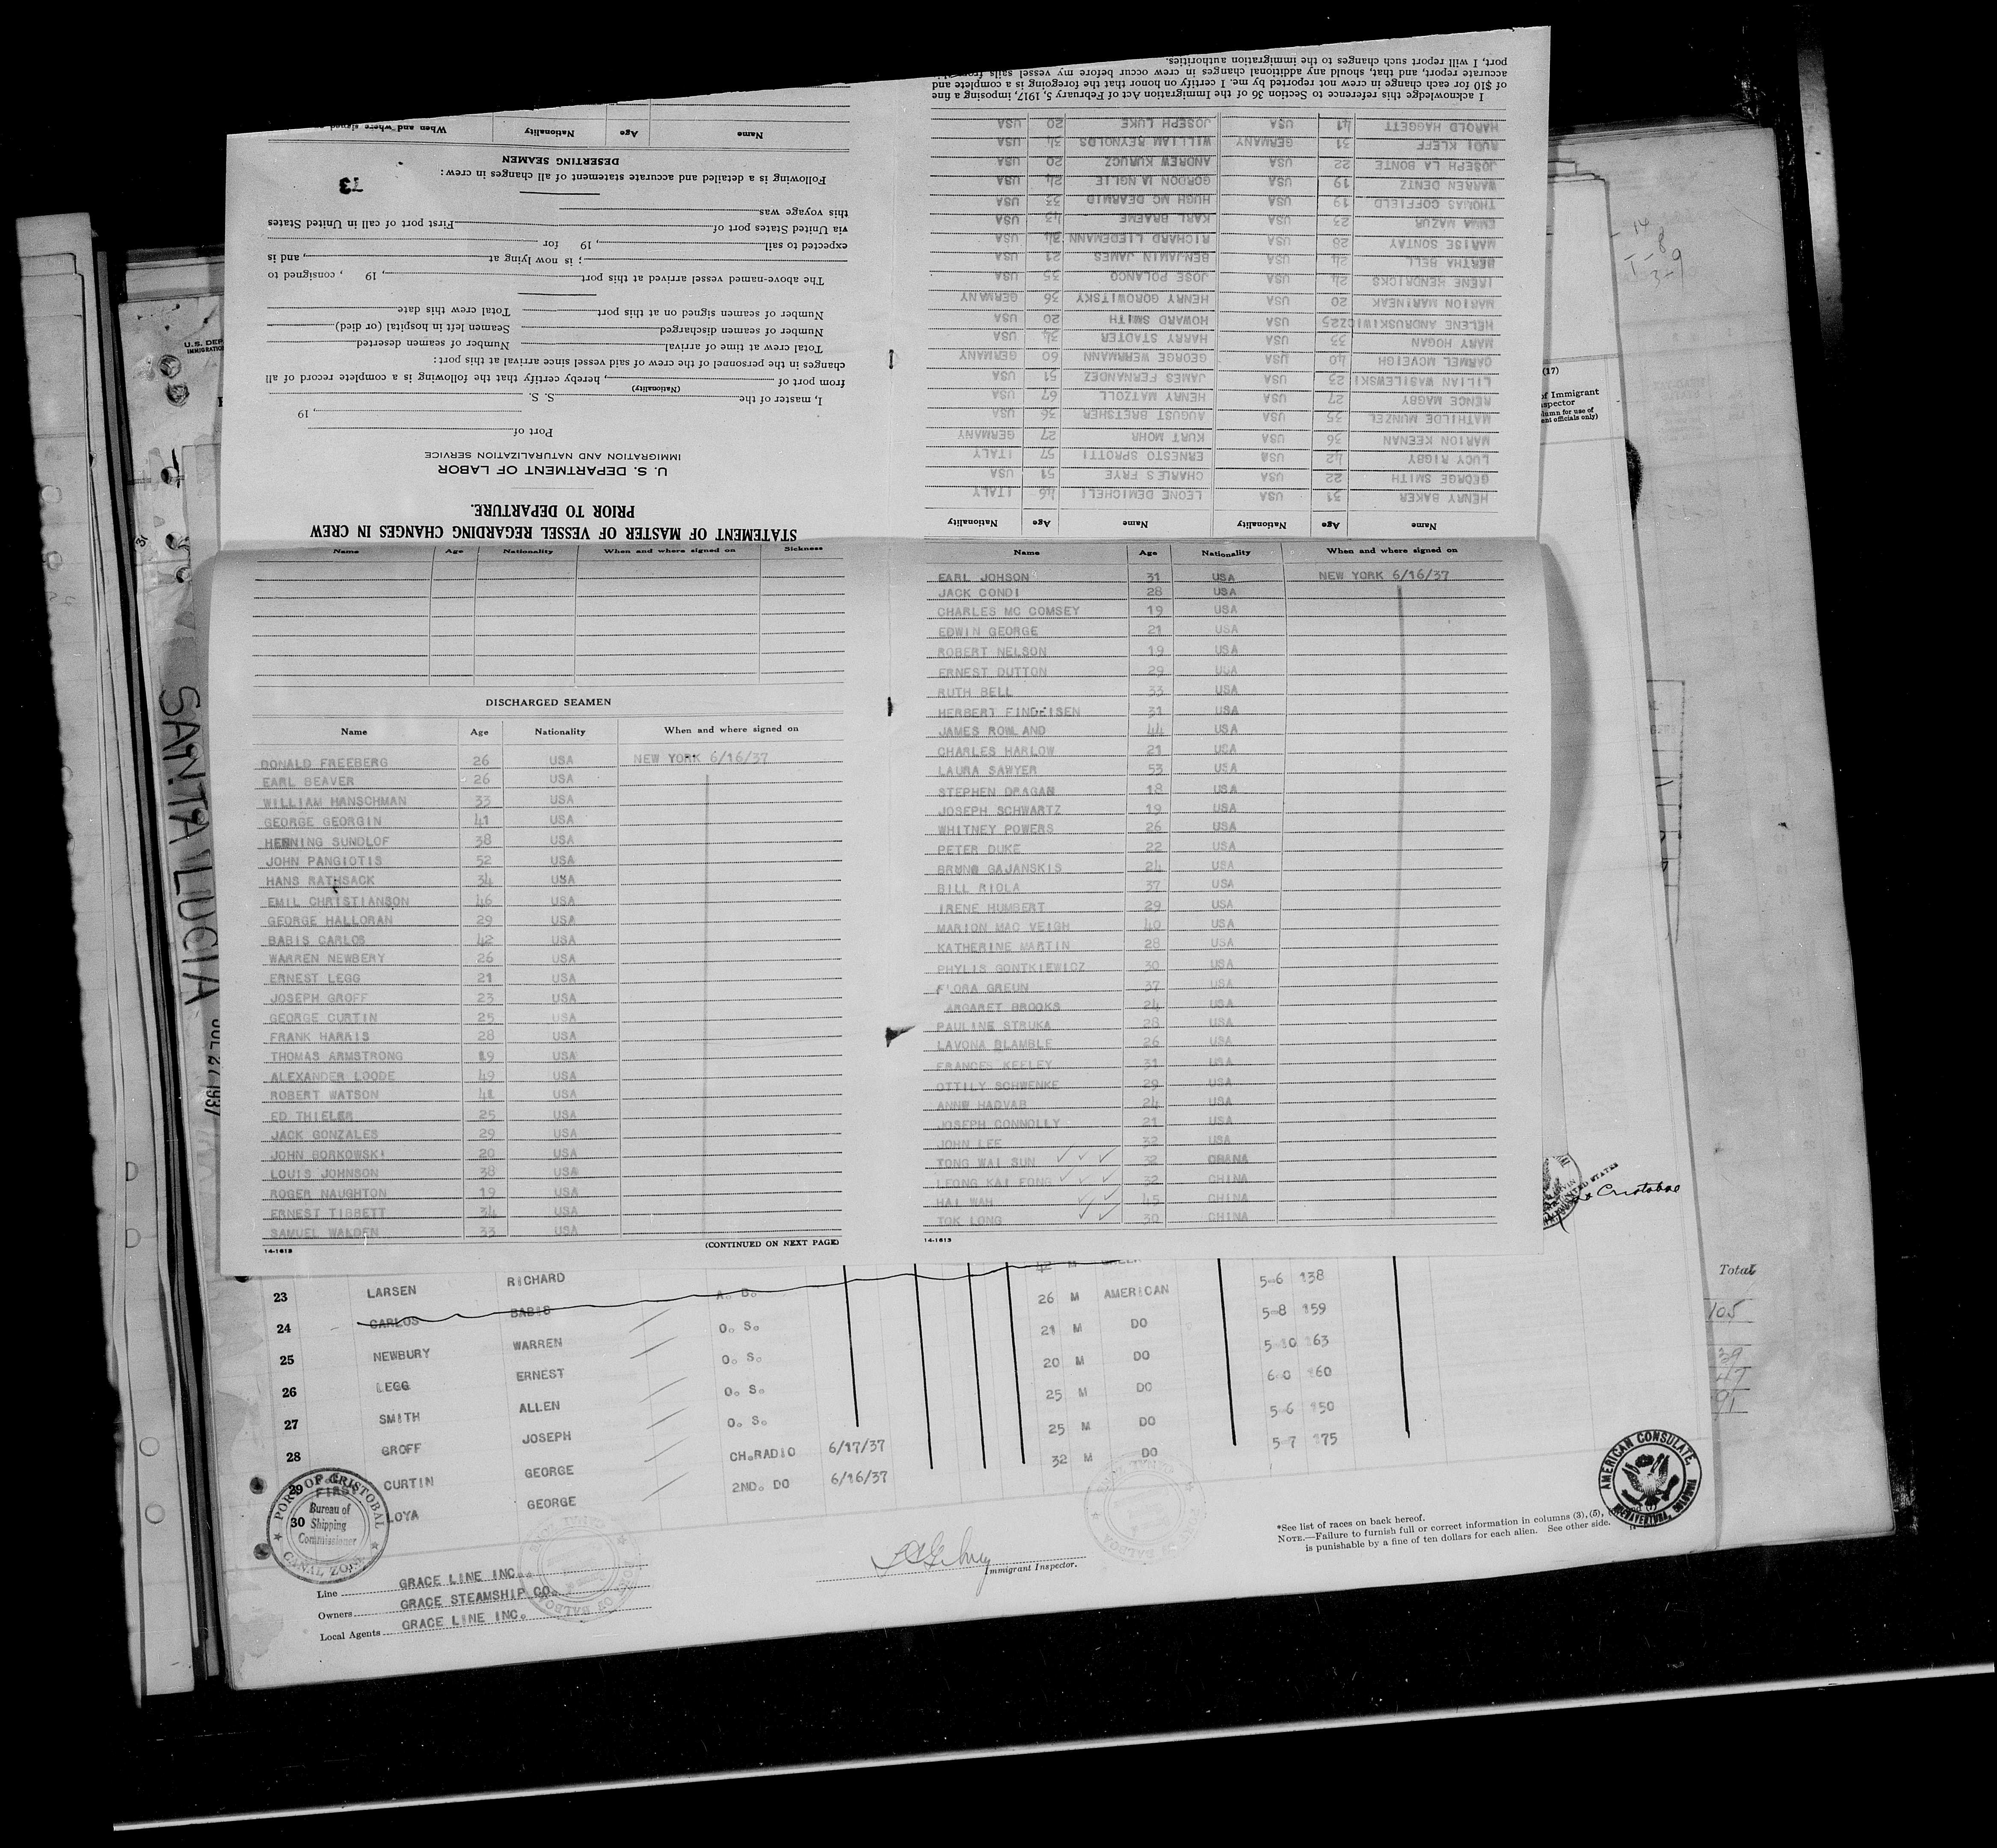 STATEMENT OF MASTER OF VESSEL REGARDING CHANGES IN CREW
PRIOR TO DEPARTURE.
U. S. DEPARTMENT OF LABOR
IMMIGRATION AND NATURALIZATION SERVICE
Port of
, 19
I, master of the S. S.
(Nationality)
from port of , hereby certify that the following is a complete record of all
changes in the personnel of the crew of said vessel since arrival at this port:
Total crew at time of arrival Number of seamen deserted
Number of seamen discharged Seamen left in hospital (or died)
Number of seamen signed on at this port Total crew this date
The above-named vessel arrived at this port , 19 , consigned to
; is now lying at , and is
expected to sail , 19 for
via United States port of First port of call in United States
this voyage was
73
Following is a detailed and accurate statement of all changes in crew:
DESERTING SEAMEN
Name Age Nationality When and where signed on
Name Age Nationality Name Age Nationality
HENRY BAKER 31 USA LEONE DEMICHELI 46 ITALY
GEORGE SMITH 22 USA CHARLES FRYE 51 USA
LUCY RIGBY 42 USA ERNESTO SPROTTI 57 ITALY
MARION KEENAN 36 USA KURT MOHR 27 GERMANY
MATHILDE MUNZEL 35 USA AUGUST BRETSHER 36 USA
RENCE MAGBY 27 USA HENRY MATZOLL 67 USA
LILIAN WASILEWSKI 23 USA JAMES FERNANDEZ 51 USA
CARMEL MCVEIGH 40 USA GEORGE WERMANN 60 GERMANY
MARY HOGAN 33 USA HARRY STADTER 34 USA
HELENE ANDRUSKIWICZ 25 USA HOWARD SMITH 20 USA
MARION MARINEAK 20 USA HENRY GOROWITSKY 36 GERMANY
IRENE HENDRICKS 24 USA JOSE POLANCO 35 USA
BERTHA BELL 24 USA BENJAMIN JAMES 21 USA
MARISE SONTAY 28 USA RICHARD LIEDEMENN 34 USA
EMMA MAZUR 23 USA KARL BRAEME 43 USA
THOMAS COFFIELD 19 USA HUGH MC DEARMID 33 USA
WARREN DENTZ 19 USA GORDON LA NGLIE 24 USA
JOSEPH LA BONTE 22 USA ANDREW KURUCZ 20 USA
RUDI KLEFF 31 GERMANY WILLIAM REYNOLDS 34 USA
HAROLD HAGGETT 41 USA JOSEPH LUKE 20 USA
I acknowledge this reference to Section 36 of the Immigration Act of February 5, 1917, imposing a fine
of $10 for each change in crew not reported by me. I certify on honor that the foregoing is a complete and
accurate report, and that, should any additional changes in crew occur before my vessel sails from this
port, I will report such changes to the immigration authorities.
Name Age Nationality When and where signed on Sickness
DISCHARGED SEAMEN
Name Age Nationality When and where signed on
DONALD FREEBERG 26 USA NEW YORK 6/16/37
EARL BEAVER 26 USA
WILLIAM HANSCHMAN 33 USA
GEORGE GEORGIN 41 USA
HENNING SUNDLOF 38 USA
JOHN PANGIOTIS 52 USA
HANS RATHSACK 34 USA
EMIL CHRISTIANSON 46 USA
GEORGE HALLORAN 29 USA
BABIS CARLOS 42 USA
WARREN NEWBERY 26 USA
ERNEST LEGG 21 USA
JOSEPH GROFF 23 USA
GEORGE CURTIN 25 USA
FRANK HARRIS 28 USA
THOMAS ARMSTRONG 19 USA
ALEXANDER LOODE 49 USA
ROBERT WATSON 41 USA
ED THIELER 25 USA
JACK GONZALES 29 USA
JOHN BORKOWSKI 20 USA
LOUIS JOHNSON 38 USA
ROGER NAUGHTON 19 USA
ERNEST TIBBETT 34 USA
SAMUEL WALDEN 33 USA
14-1613
(CONTINUED ON NEXT PAGE)
Name Age Nationality When and where signed on
EARL JOHSON 31 USA NEW YORK 6/16/37
JACK CONDI 28 USA
CHARLES MC COMSEY 19 USA
EDWIN GEORGE 21 USA
ROBERT NELSON 19 USA
ERNEST DUTTON 29 USA
RUTH BELL 33 USA
HERBERT FINDEISEN 31 USA
JAMES ROWLAND 44 USA
CHARLES HARLOW 21 USA
LAURA SAWYER 53 USA
STEPHEN DRAGAN 18 USA
JOSEPH SCHWARTZ 19 USA
WHITNEY POWERS 26 USA
PETER DUKE 22 USA
BRUNO GAJANSKIS 24 USA
BILL RIOLA 37 USA
IRENE HUMBERT 29 USA
MARION MAC VEIGH 40 USA
KATHERINE MARTIN 28 USA
PHYLIS GONTKIEWICZ 30 USA
FLORA GREUN 37 USA
ARGARET BROOKS 24 USA
PAULINE STRUKA 28 USA
LAVONA BLAMBLE 26 USA
FRANCES KEELEY 31 USA
OTTILY SCHWENKE 29 USA
ANNW HADVAB 24 USA
JOSEPH CONNOLLY 21 USA
JOHN LEE 32 USA
TONG WAI SUN 32 CHANA
LEONG KAI FONG 32 CHINA
HAI WAH 45 CHINA
TOK LONG 30 CHINA
14-1613
SANTA LUCIA
JUL 27 1937
U.S. DEP
IMMIGRATIO
(17)
of Immigrant
spector
Cristobal
Total
105
39
47
91
23 LARSEN RICHARD A. B. 26 M AMERICAN 5-6 138
24 CARLOS BABIS O. S. 21 M DO 5-8 159
25 NEWBURY WARREN O. S. 20 M DO 5-10 163
26 LEGG ERNEST O. S. 25 M DO 6-0 160
27 SMITH ALLEN O. S. 25 M DO 5-6 150
28 GROFF JOSEPH CH.RADIO 6/17/37 32 M DO 5-7 175
29 CURTIN GEORGE 2ND. DO 6/16/37
30 LOYA GEORGE
PORT OF CRISTOBAL
Bureau of
Shipping
Commissioner
CANAL ZONE
Line GRACE LINE INC.
Owners GRACE STEAMSHIP CO.
Local Agents GRACE LINE INC.
Immigrant Inspector.
*See list of races on back hereof.
NOTE.—Failure to furnish full or correct information in columns (3), (5),
is punishable by a fine of ten dollars for each alien. See other side.
AMERICAN CONSULATE,
BUENAVENTURA, COLOMBIA